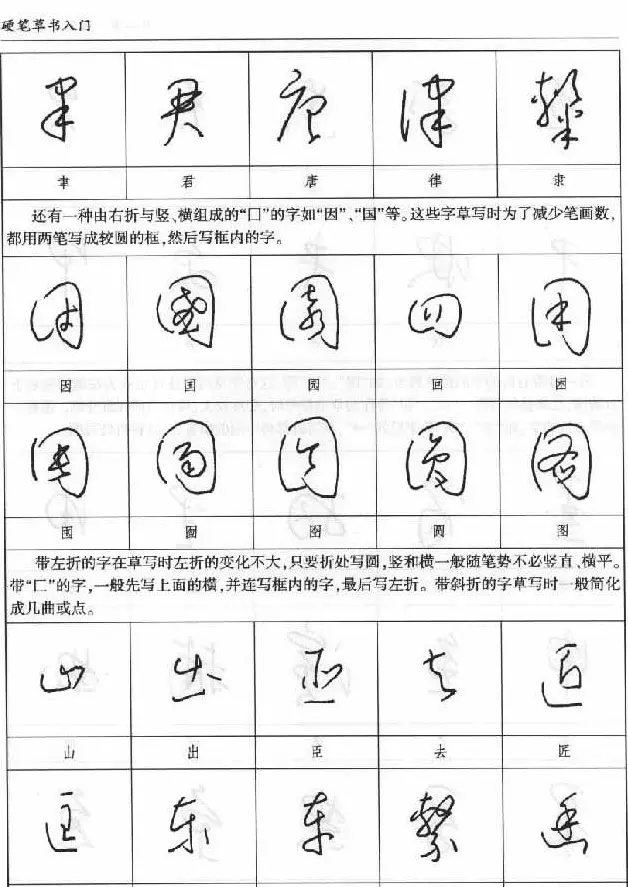 硬笔草书入门
聿 君 唐 律 隶
聿 君 唐 律 隶
还有一种由右折与竖、横组成的“囗”的字如“因”、“国”等。这些字草写时为了减少笔画数,
都用两笔写成较圆的框,然后写框内的字。
国 园 四
国 园
圆 图
圆 图
带左折的字在草写时左折的变化不大,只要折处写圆,竖和横一般随笔势不必竖直、横平。
带“匚”的字,一般先写上面的横,并连写框内的字,最后写左折。带斜折的字草写时一般简化
成几曲或点。
山 出 臣 去 匠
山 出 臣 去 匠
匡 东 车